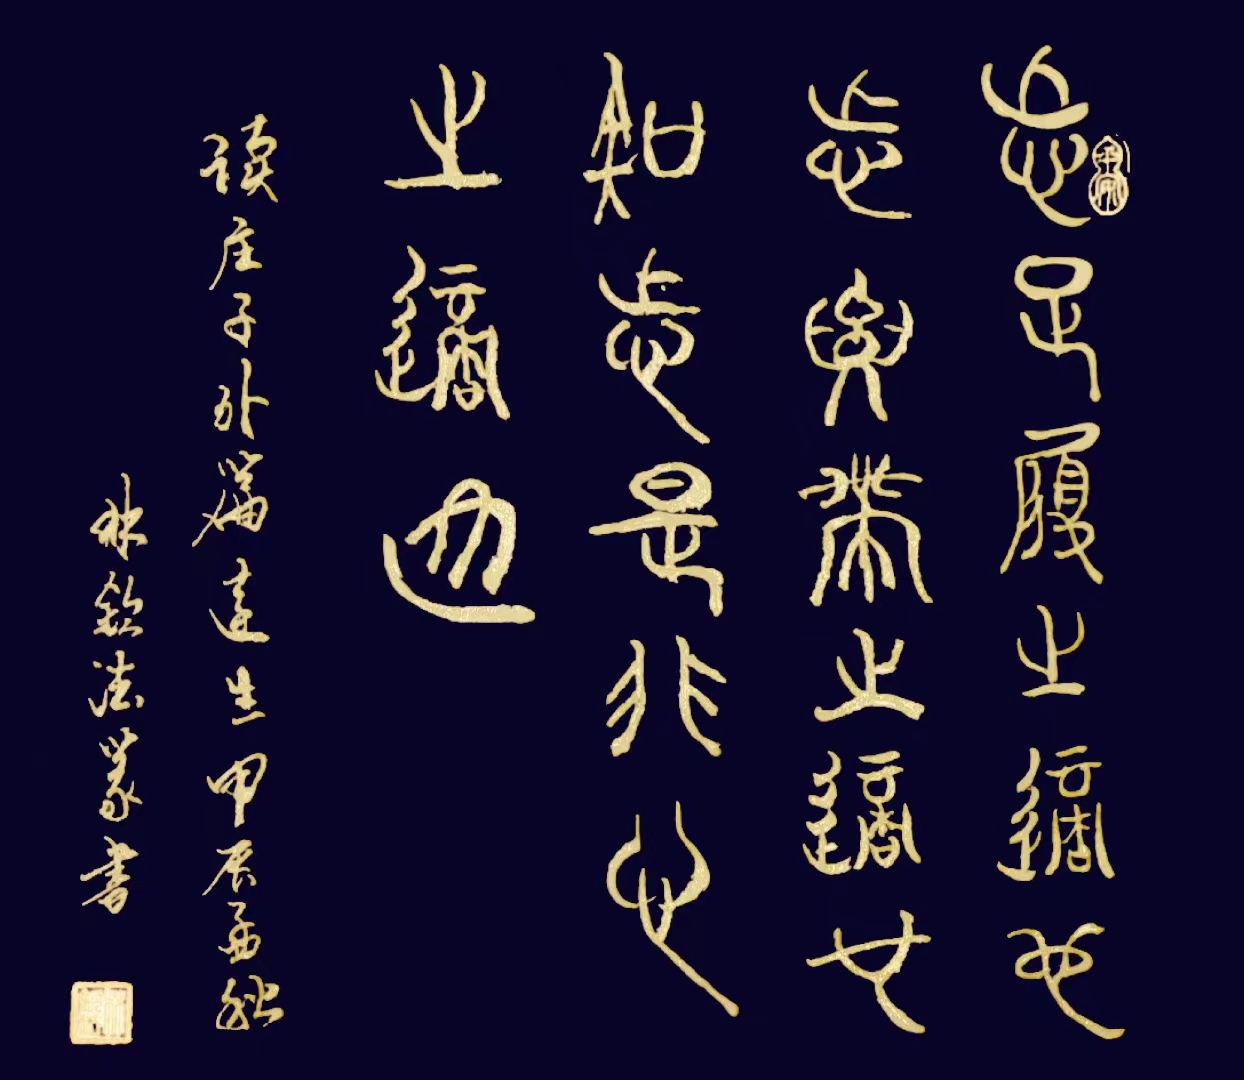 忘足履之適也
忘要帶之適也
知忘是非心
之適也
读庄子外篇達生甲辰孟秋
林欽法篆書